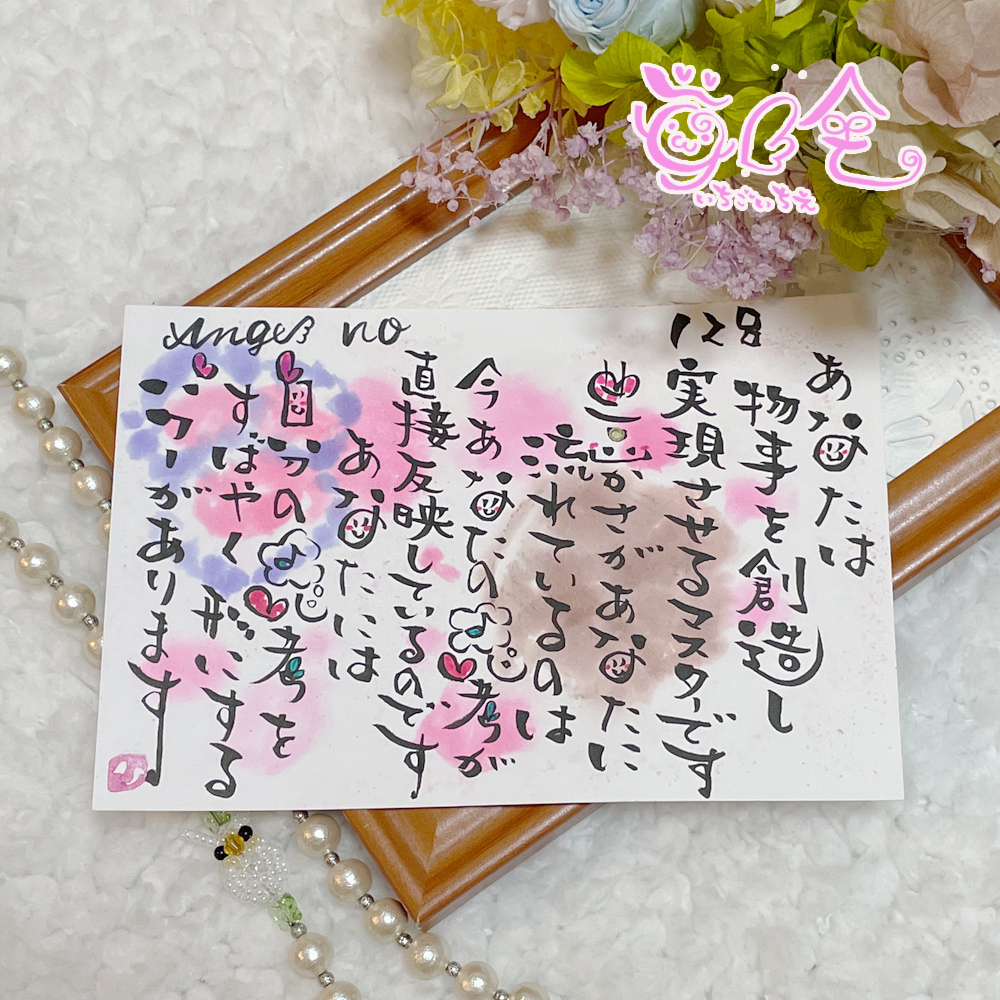 いちごいちえ
Angel no 128
あなたは
物事を創造し
実現させるマスターです
豊かさがあなたに
流れているのは
今あなたの思考が
直接反映しているのです
あなたには
自分の思考を
すばやく形にする
パワーがあります